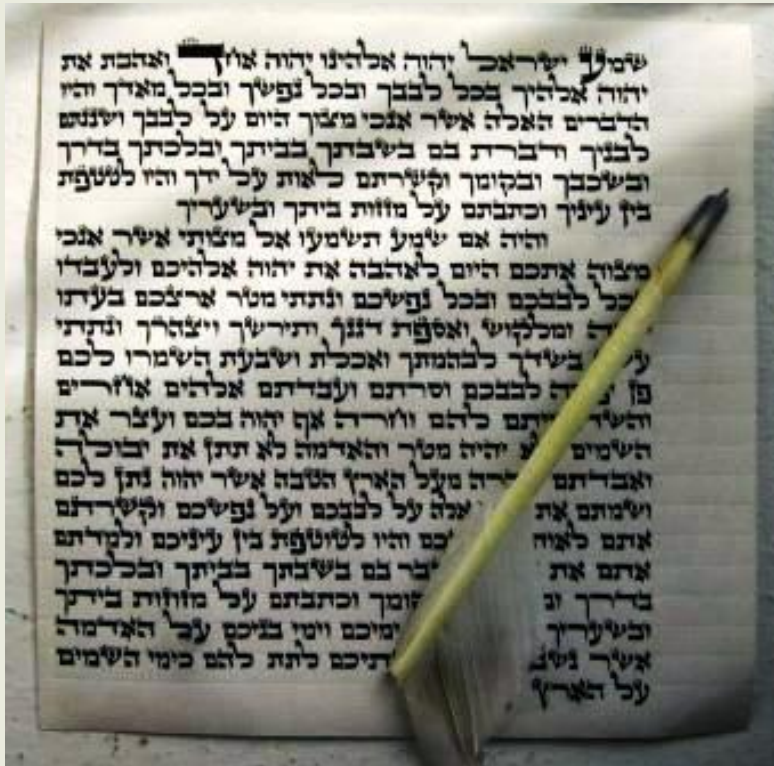 שמע ישראל יהוה אלהינו יהוה אחד ואהבת את
יהוה אלהיך בכל לבבך ובכל נפשך ובכל מאדך והיו
הדברים האלה אשר אנכי מצוך היום על לבבך ושננתם
לבניך ודברת בם בשבתך בביתך ובלכתך בדרך
ובשכבך ובקומך וקשרתם לאות על ידך והיו לטטפת
בין עיניך וכתבתם על מזזות ביתך ובשעריך
והיה אם שמע תשמעו אל מצותי אשר אנכי
מצוה אתכם היום לאהבה את יהוה אלהיכם ולעבדו
בכל לבבכם ובכל נפשכם ונתתי מטר ארצכם בעתו
ומלקוש ואספת דגנך ותירשך ויצהרך ונתתי
בשדך לבהמתך ואכלת ושבעת השמרו לכם
פן לבבכם וסרתם ועבדתם אלהים אחרים
להם וחרה אף יהוה בכם ועצר את
השמים לא יהיה מטר והאדמה לא תתן את יבולה
ואבדתם מהרה מעל הארץ הטבה אשר יהוה נתן לכם
ושמתם את אלה על לבבכם ועל נפשכם וקשרתם
אתם והיו לטוטפת בין עיניכם ולמדתם
אתם את בם בשבתך בביתך ובלכתך
בדרך וכתבתם על מזוזות ביתך
ובשעריך ימיכם וימי בניכם על האדמה
אשר לתת להם כימי השמים
על הארץ